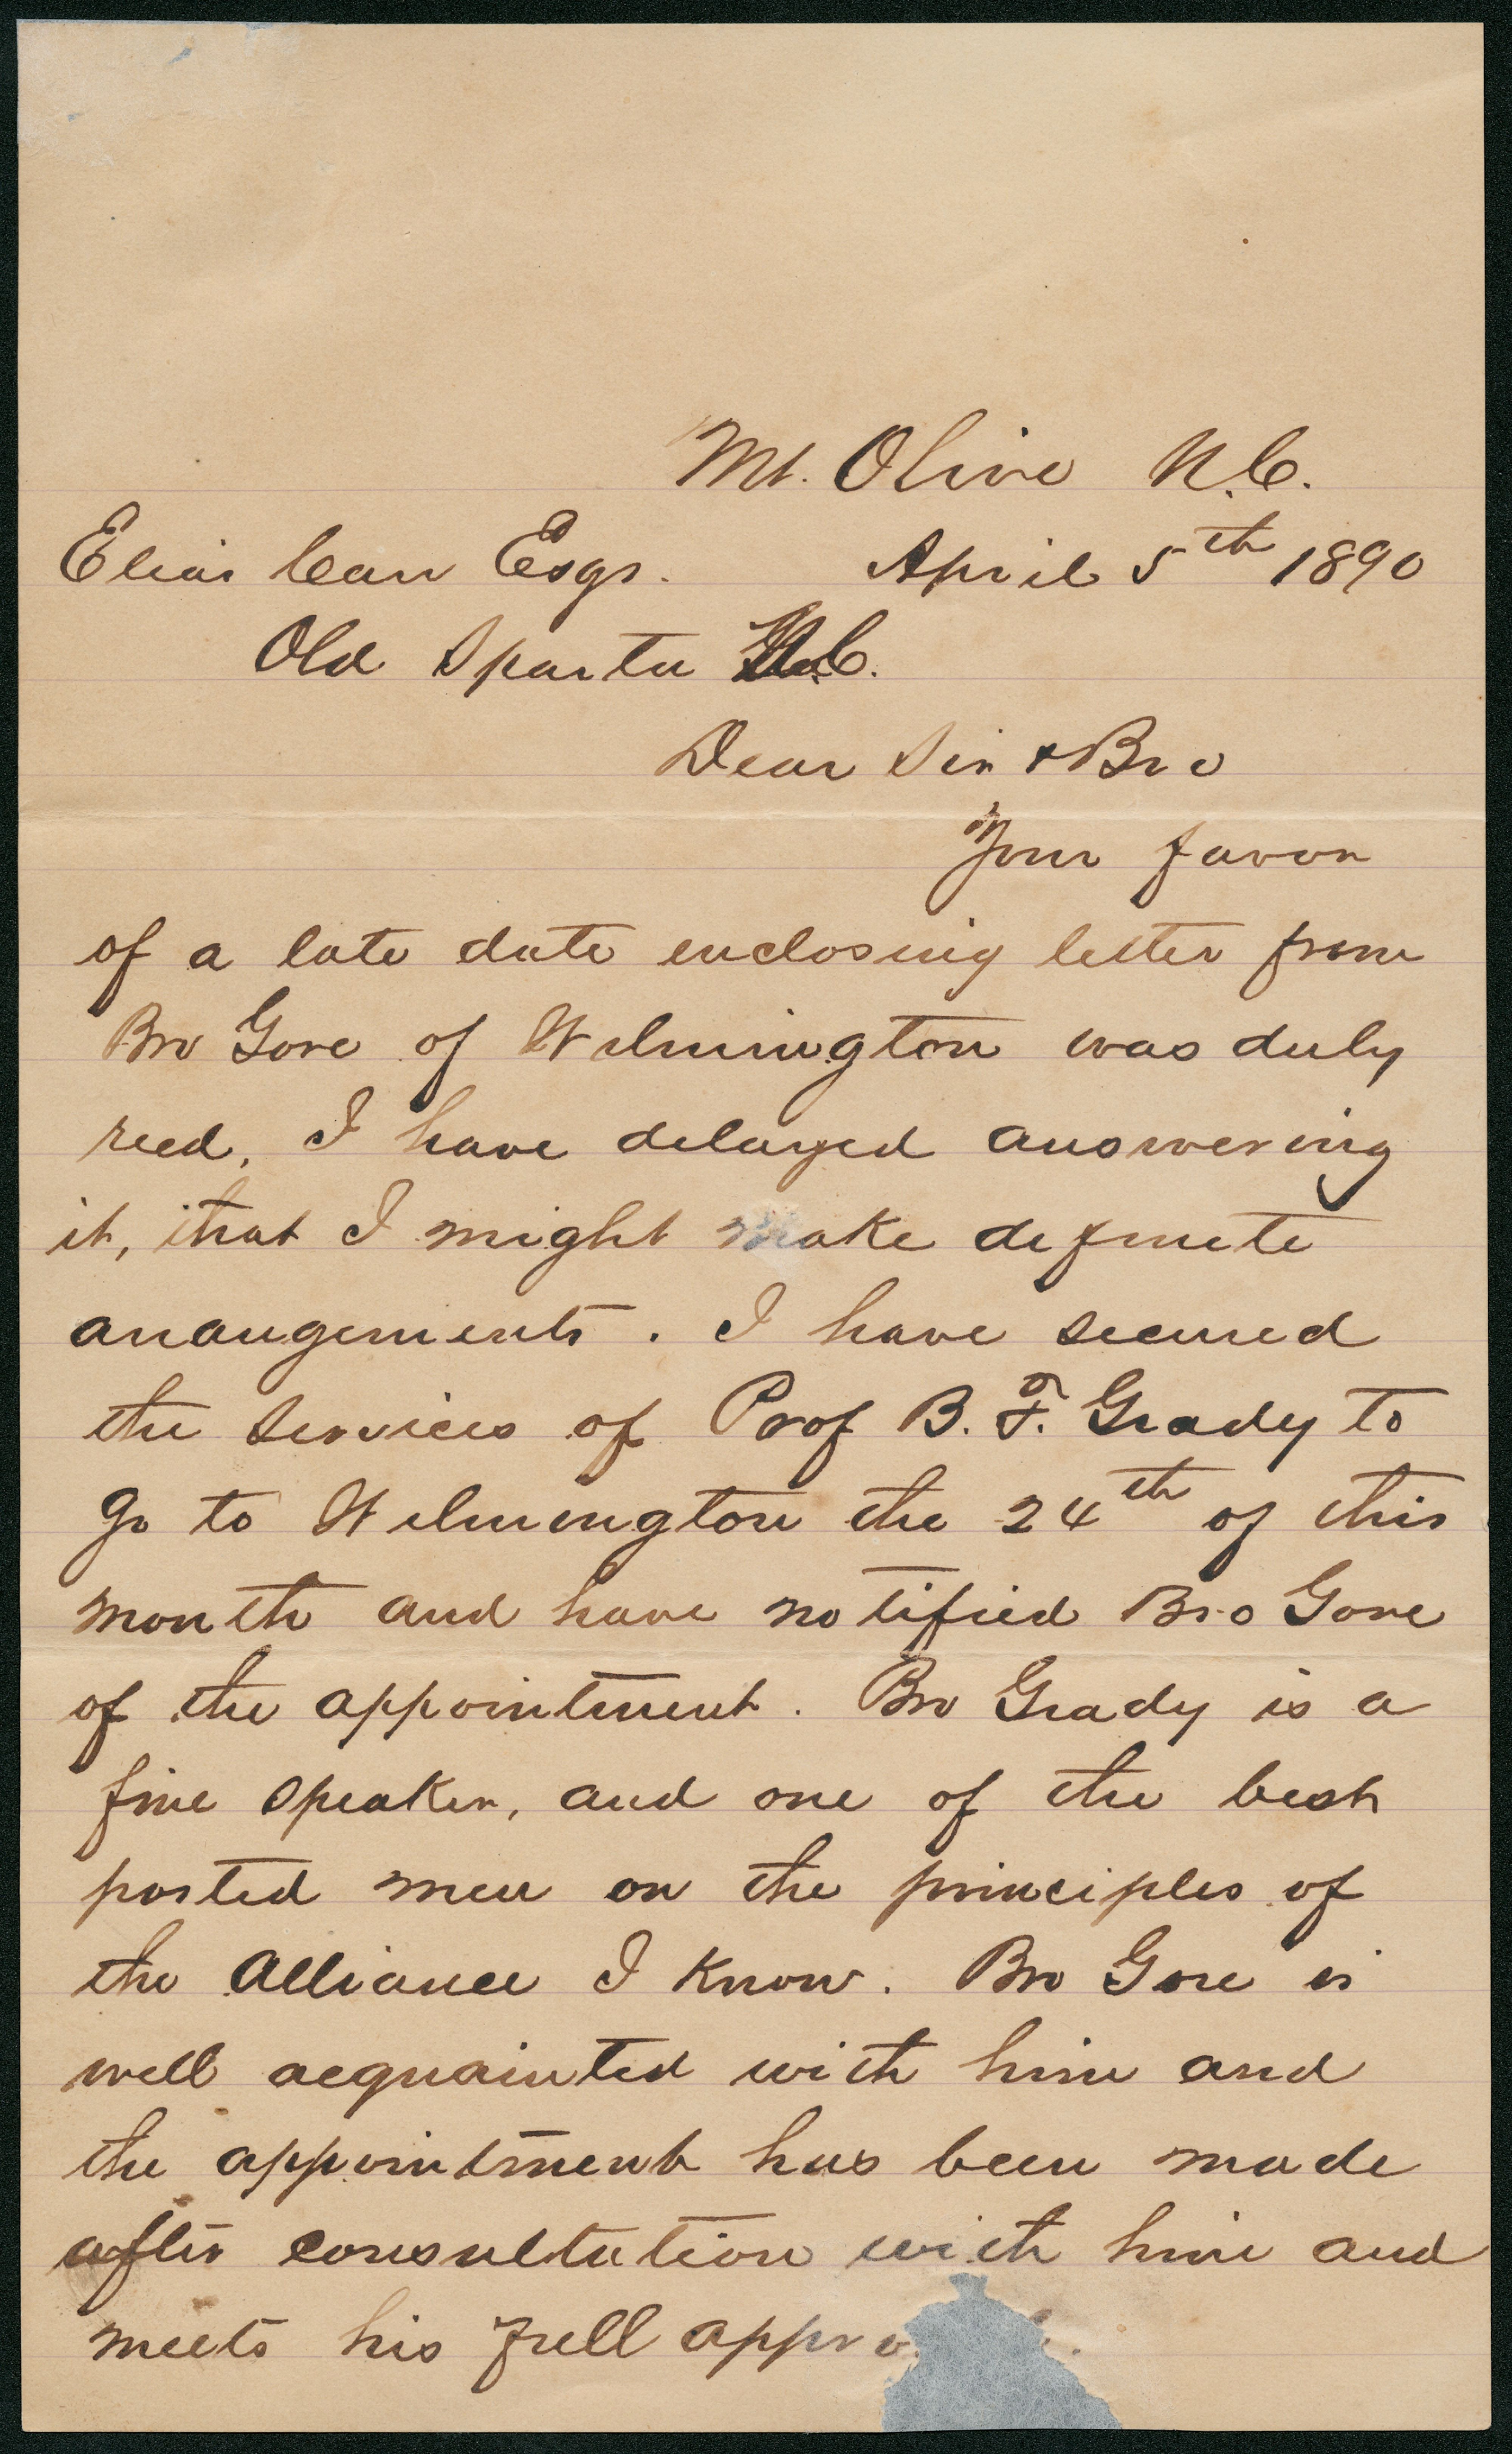 Mt. Olive N.C.
Elias Carr Esqr. April 5th 1890
Old Sparta N.C.
Dear Sir & Bro
Your favor
of a late date enclosing letter from
Bro Gore of Wilmington was duly
recd. I have delayed answering
it, that I might make definite
arrangements. I have secured
the services of Prof B. F. Grady to
go to Wilmington the 24th of this
month and have notified Bro Gore
of the appointment. Bro Grady is a
fine speaker, and one of the best
posted men on the principles of
the Alliance I know. Bro Gore is
well acquainted with him and
the appointment has been made
after consultation with him and
meets his full